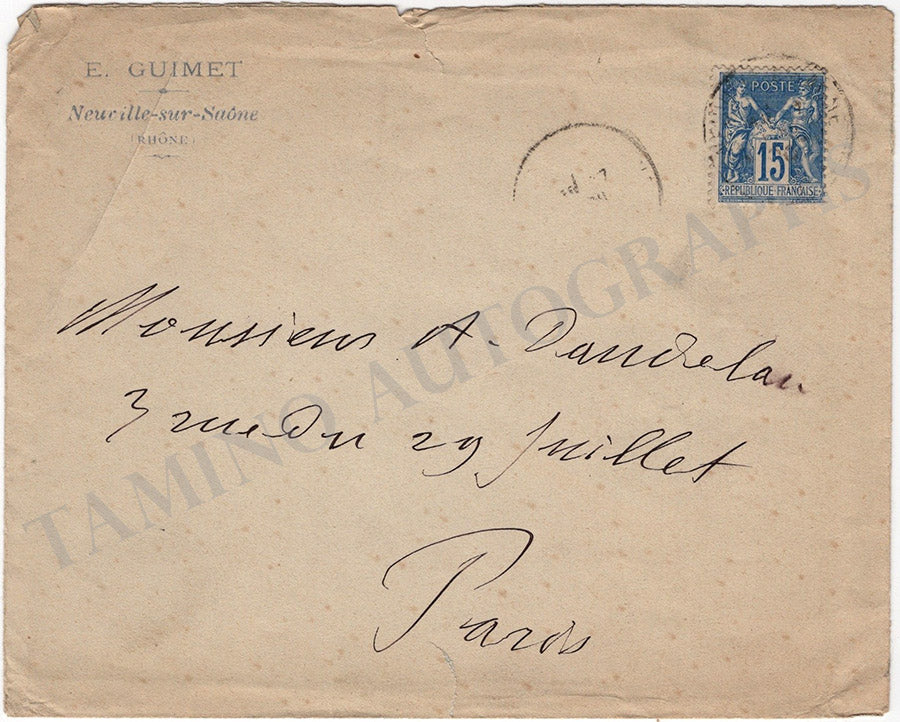 E. GUIMET
Neuville-sur-Saône
(RHÔNE)
POSTE
15
RÉPUBLIQUE FRANÇAISE
Monsieur A. Dandelau
3 rue du 29 Juillet
Paris
TAMINO AUTOGRAPHS